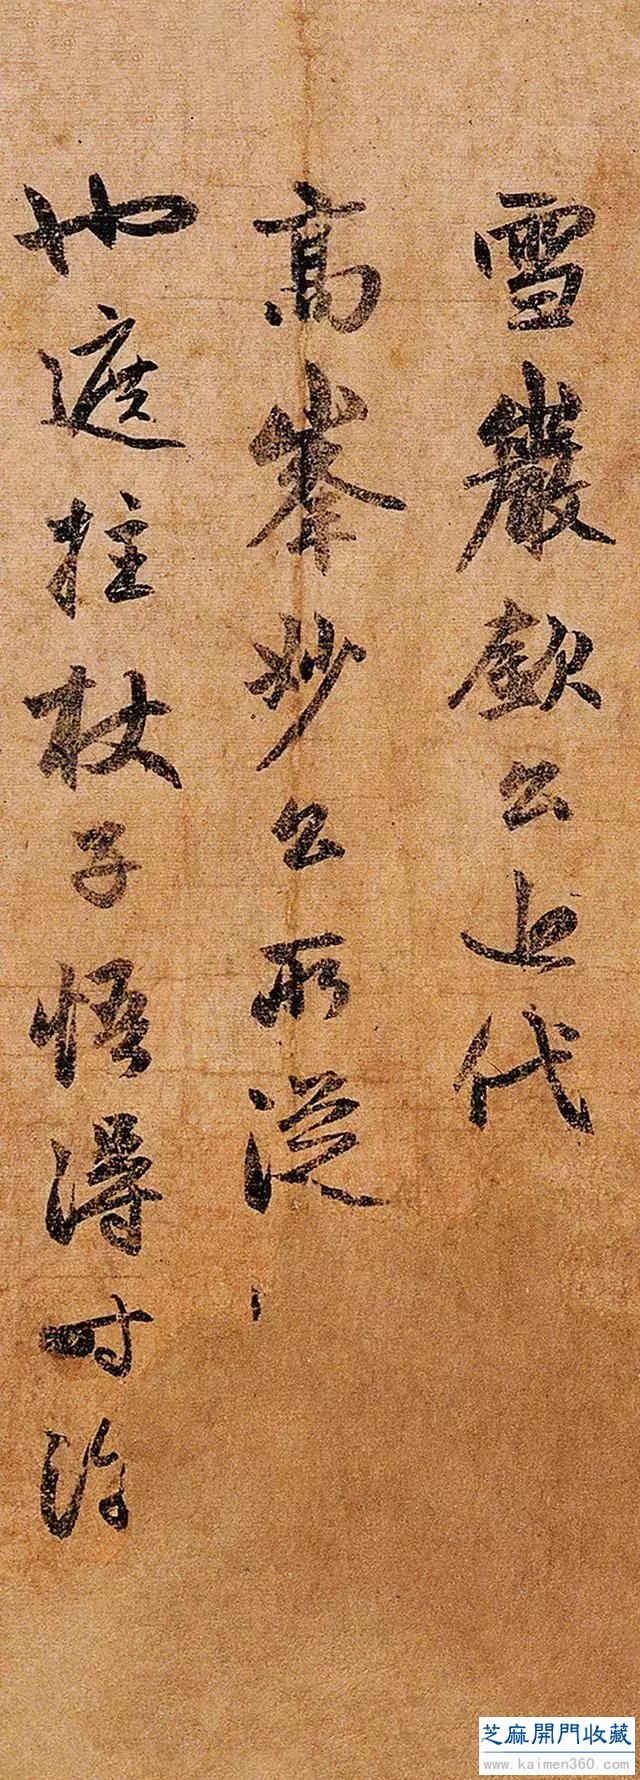 雪巖欽公代
高峯妙公所從
也遮拄杖子悟得时
芝麻開門收藏
www.kaimen360.com